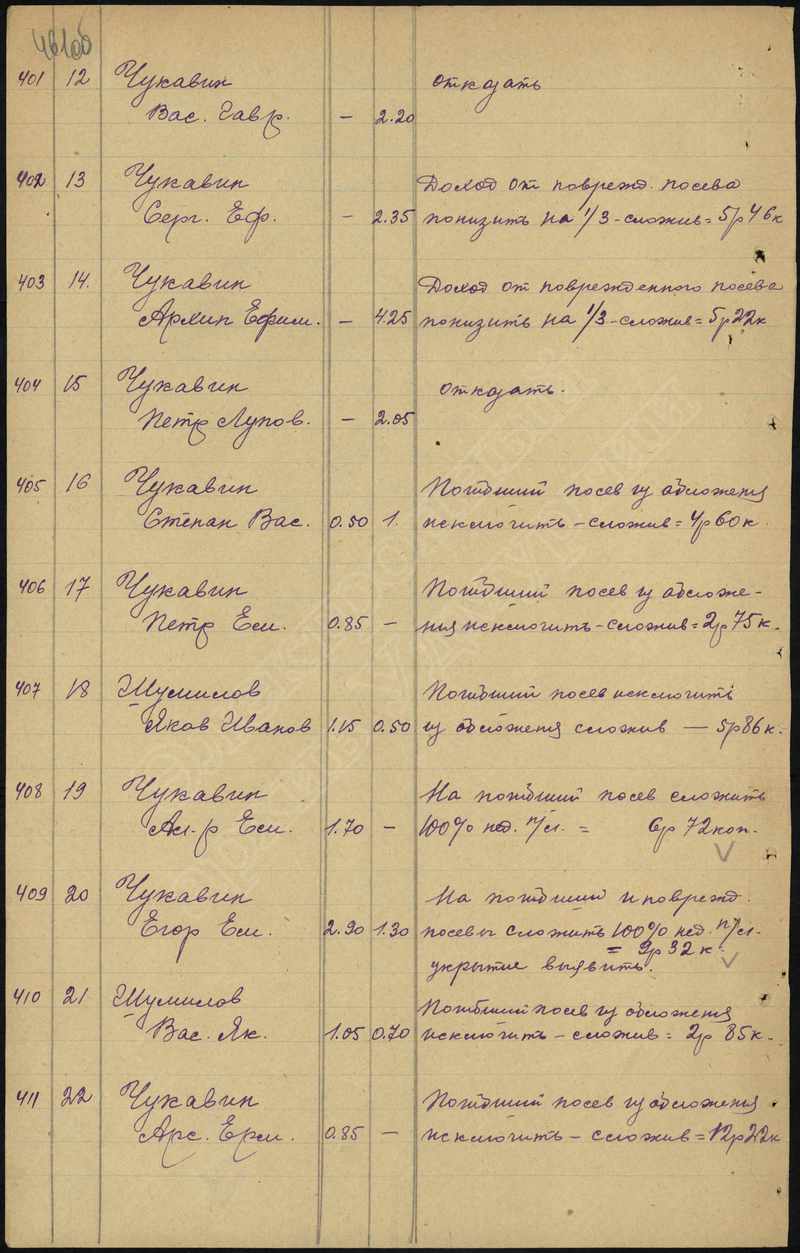 401 12 Чукавин отказать
Вас. Гавр. — 2.20
402 13 Чукавин Доход от поврежд. посева
Серг. Еф. — 2.35 понизить на 1/3 - сложив = 5р 46к
403 14. Чукавин Доход от поврежденного посева
Архип Ефим. — 4.25 понизить на 1/3 - сложив = 5р 22к
404 15 Чукавин отказать.
Петр Лупов. — 2.05
405 16 Чукавин Погибший посев из обложения
Степан Вас. 0.50 1. исключить - сложив = 4р 60к.
406 17 Чукавин Погибший посев из обложе-
Петр Ем. 0.85 — ния исключить - сложив = 2р 75к.
407 18 Шумилов Погибший посев исключить
Яков Иванов 1.15 0.50 из обложения сложив — 5р 86к.
408 19 Чукавин На погибший посев сложить
Ал-р Ем. 1.70 — 100% нед. п/сл. = 6р 72коп.
409 20 Чукавин На погибший и поврежд.
Егор Ем. 2.90 1.30 посевы сложить 100% нед. п/сл.
= 9р 32к.
укрытие выявить.
410 21 Шумилов Погибший посев из обложения
Вас. Як. 1.05 0.70 исключить - сложив = 2р 85к.
411 22 Чукавин Погибший посев из обложения
Арс. Ерм. 0.85 — исключить - сложив = 12р 22к